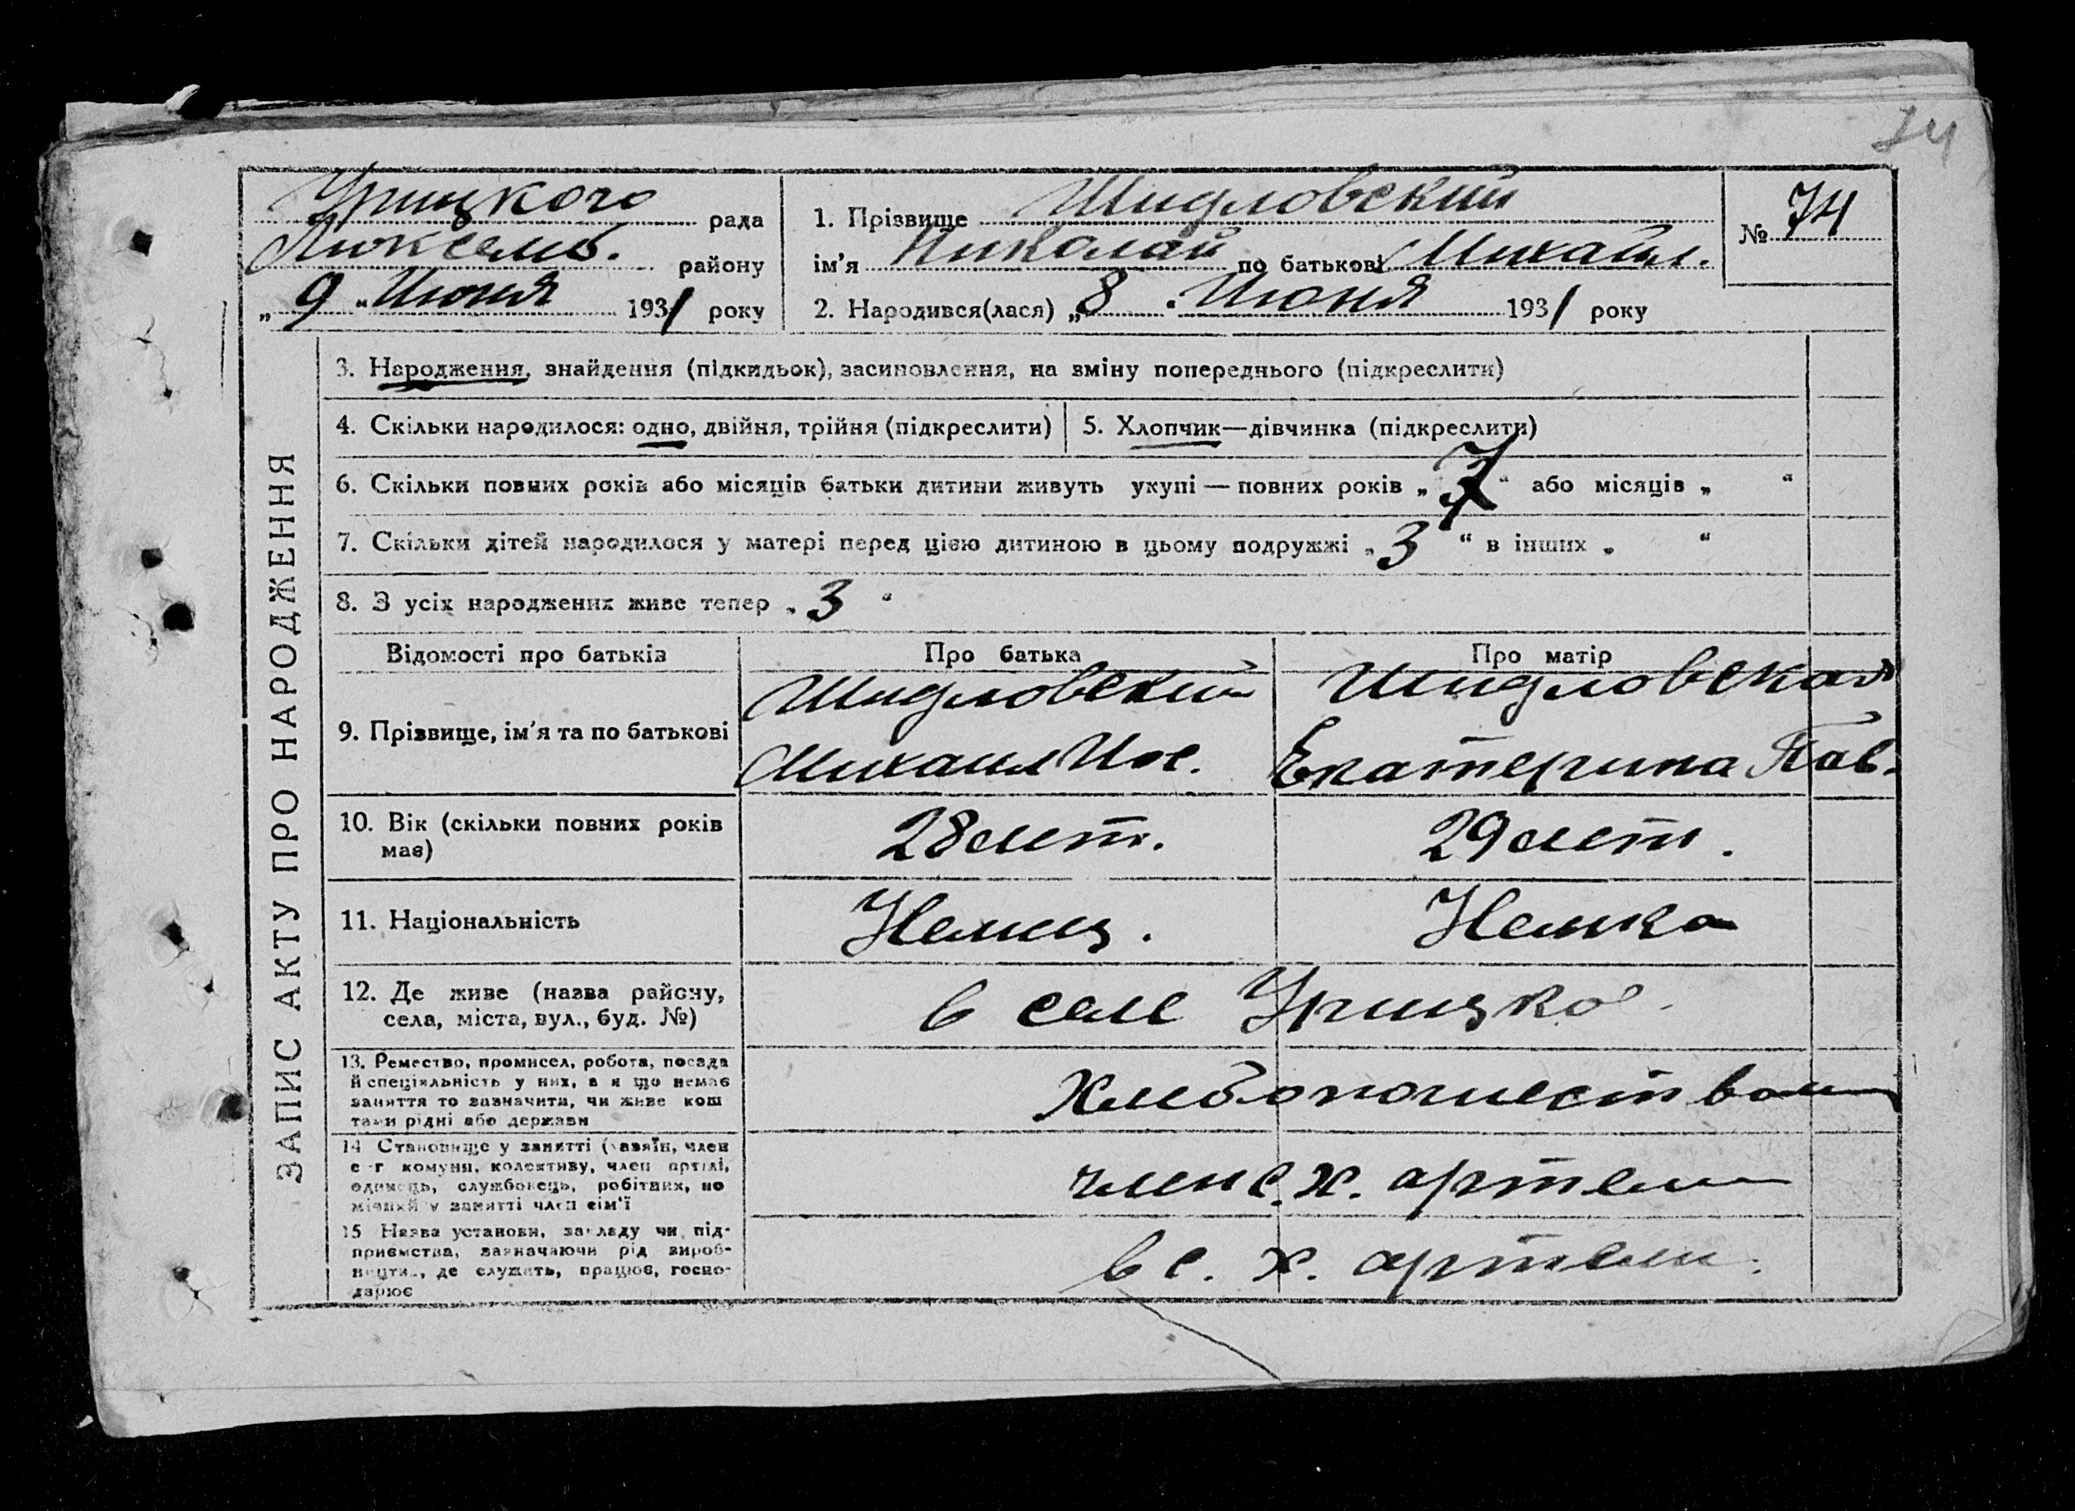 74
Урицкого рада
Люксемб. району
„ 9 " Июня 1931 року
1. Прізвище Шидловский
ім'я Николай по батькові Михайл.
2. Народився(лася) „ 8 " Июня 1931 року
№ 74
ЗАПИС АКТУ ПРО НАРОДЖЕННЯ
3. Народження, знайдення (підкидьок), засиновлення, на зміну попереднього (підкреслити)
4. Скільки народилося: одно, двійня, трійня (підкреслити)
5. Хлопчик—дівчинка (підкреслити)
6. Скільки повних років або місяців батьки дитини живуть укупі — повних років „ 7 " або місяців „ "
7. Скільки дітей народилося у матері перед цією дитиною в цьому подружжі „ 3 " в інших „ "
8. З усіх народжених живе тепер „ 3 "
Відомості про батьків
Про батька
Про матір
9. Прізвище, ім'я та по батькові
Шидловский
Михаил Иос.
Шидловская
Екатерина Пав.
10. Вік (скільки повних років
має)
28 лет.
29 лет.
11. Національність
Немец.
Немка
12. Де живе (назва району,
села, міста, вул., буд. №)
в селе Урицко
13. Ремество, промисел, робота, посада
й спеціяльність у них, а я що немає
заняття то зазначити, чи живе кош
тами рідні або держави
Хлебопашеством
14 Становище у занятті (хазяїн, член
с-г комуни, колективу, член артілі,
одинець, службовець, робітник, по
мішний у занятті член сім'ї
член с. х. артели
15 Назва установи, закладу чи під-
приємства, зазначаючи рід вироб-
ництва, де служить, працює, госпо-
дарює
в с. х. артели.